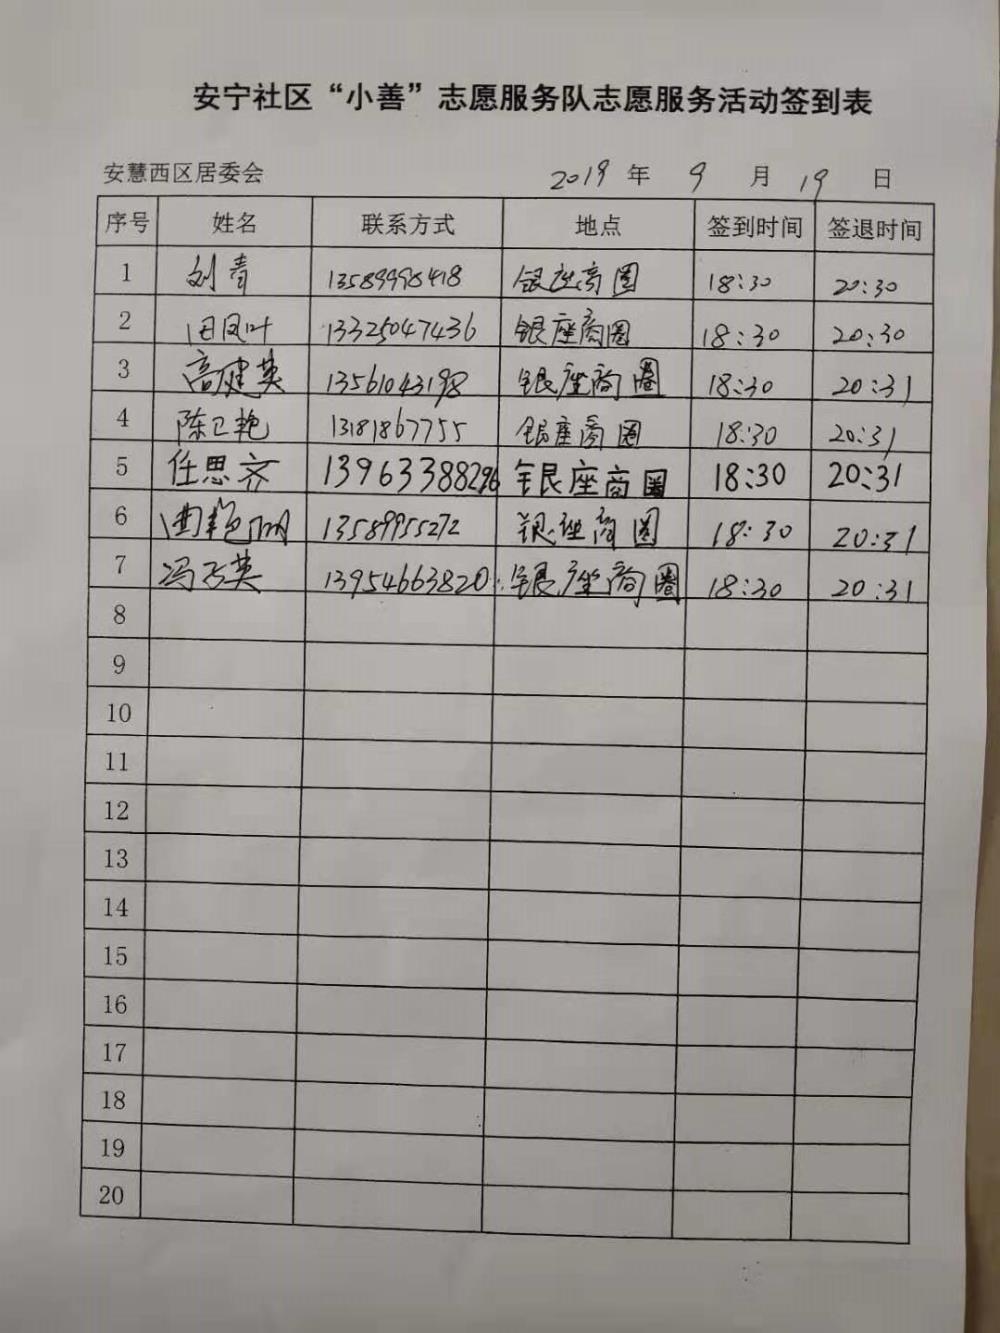 安宁社区“小善”志愿服务队志愿服务活动签到表
安慧西区居委会 2019 年 9 月 19 日
序号 姓名 联系方式 地点 签到时间 签退时间
1 刘青 13589998418 银座商圈 18:30 20:30
2 田凤叶 13325047436 银座商圈 18:30 20:30
3 高健英 13561043198 银座商圈 18:30 20:31
4 陈卫艳 13181867755 银座商圈 18:30 20:31
5 任思齐 13963388296 银座商圈 18:30 20:31
6 13589955272 银座商圈 18:30 20:31
7 13954663820 银座商圈 18:30 20:31
8
9
10
11
12
13
14
15
16
17
18
19
20